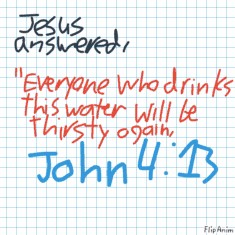 Jesus
answered,
"Everyone who drinks
this water will be
thirsty again,
John 4:13
FlipAnim